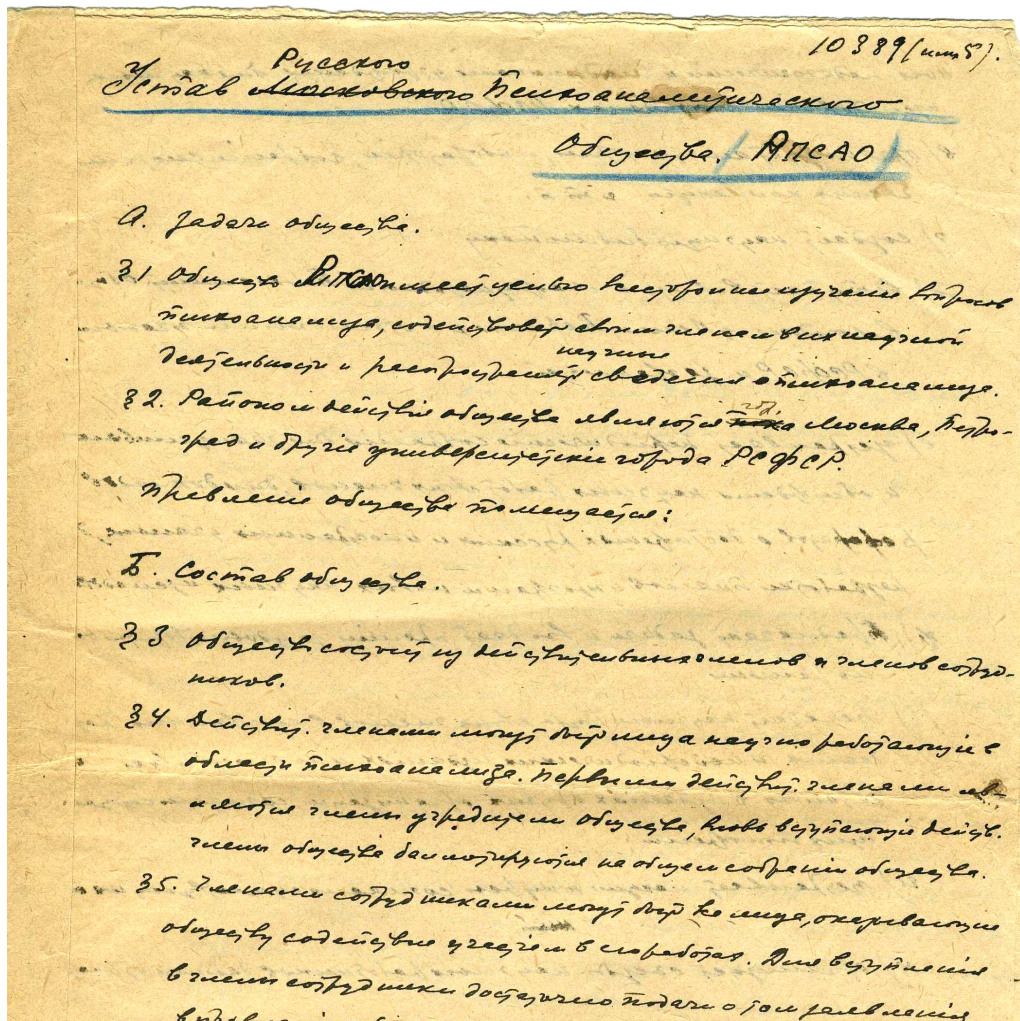 10389 (или 5).
Русского
Устав Московского Психоаналитического
Общества. / РПСАО /
А. Задачи общества.
§1 Общество РПСАО имеет целью всестороннее изучение вопросов
психоанализа, содействовать своим членам в их научной
научные
деятельности и распространять сведения о психоанализе.
§2. Районом действия общества являются гор. Москва, Петро-
град и другие университетские города РСФСР.
Правление общества помещается:
Б. Состав общества.
§3 Общество состоит из действительных членов и членов сотруд-
ников.
§4. Действит. членами могут быть лица научно работающие в
области психоанализа. Первыми действит. членами яв-
ляются члены учредители общества, вновь вступающие действ.
члены общества баллотируются на общем собрании общества.
§5. Членами сотрудниками могут быть все лица, оказывающие
обществу содействие участием в его работах. Для вступления
в члены сотрудники достаточно подачи о том заявления